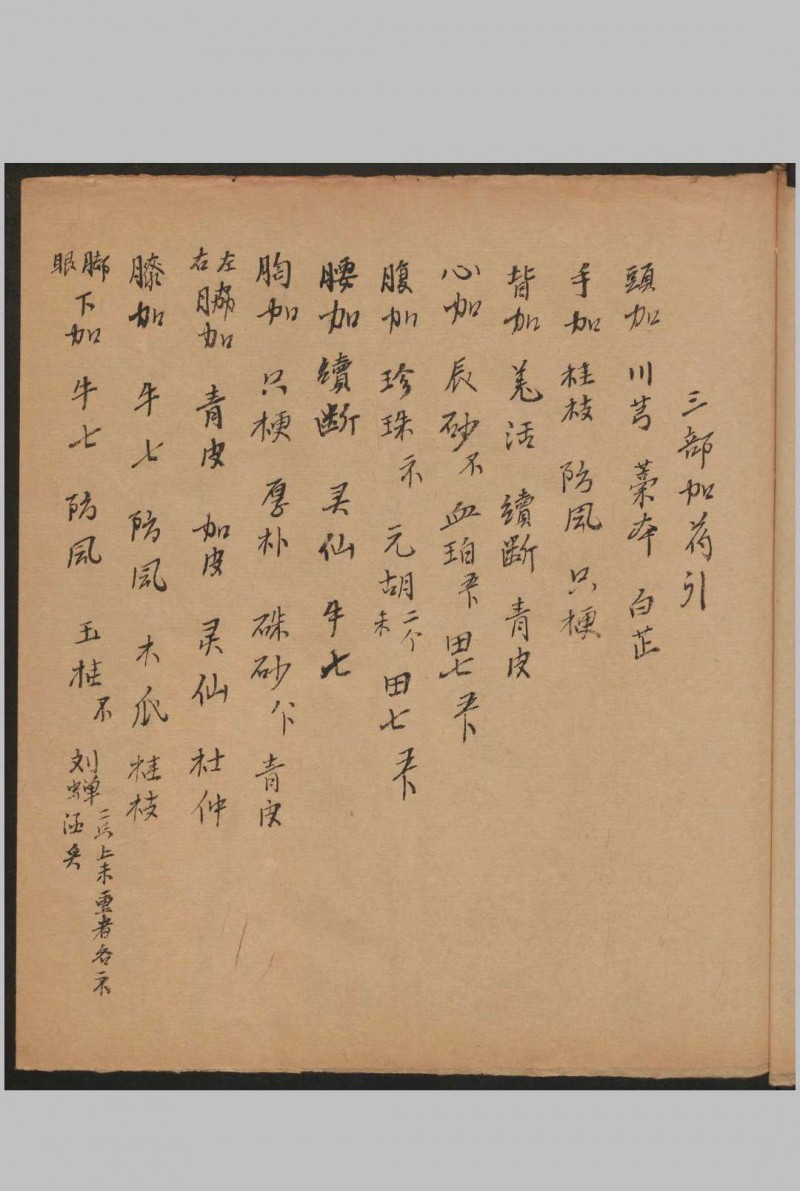 三部加药引
頭加 川芎 藁本 白芷
手加 桂枝 防風 只梗
背加 羌活 續斷 青皮
心加 辰砂 血珀 田七
腹加 珍珠 元胡 二个 田七
腰加 續斷 灵仙 牛七
胸加 只梗 厚朴 硃砂 青皮
左右脇加 青皮 加皮 灵仙 杜仲
膝加 牛七 防風 木瓜 桂枝
脚眼下加 牛七 防風 玉桂 上未重者各